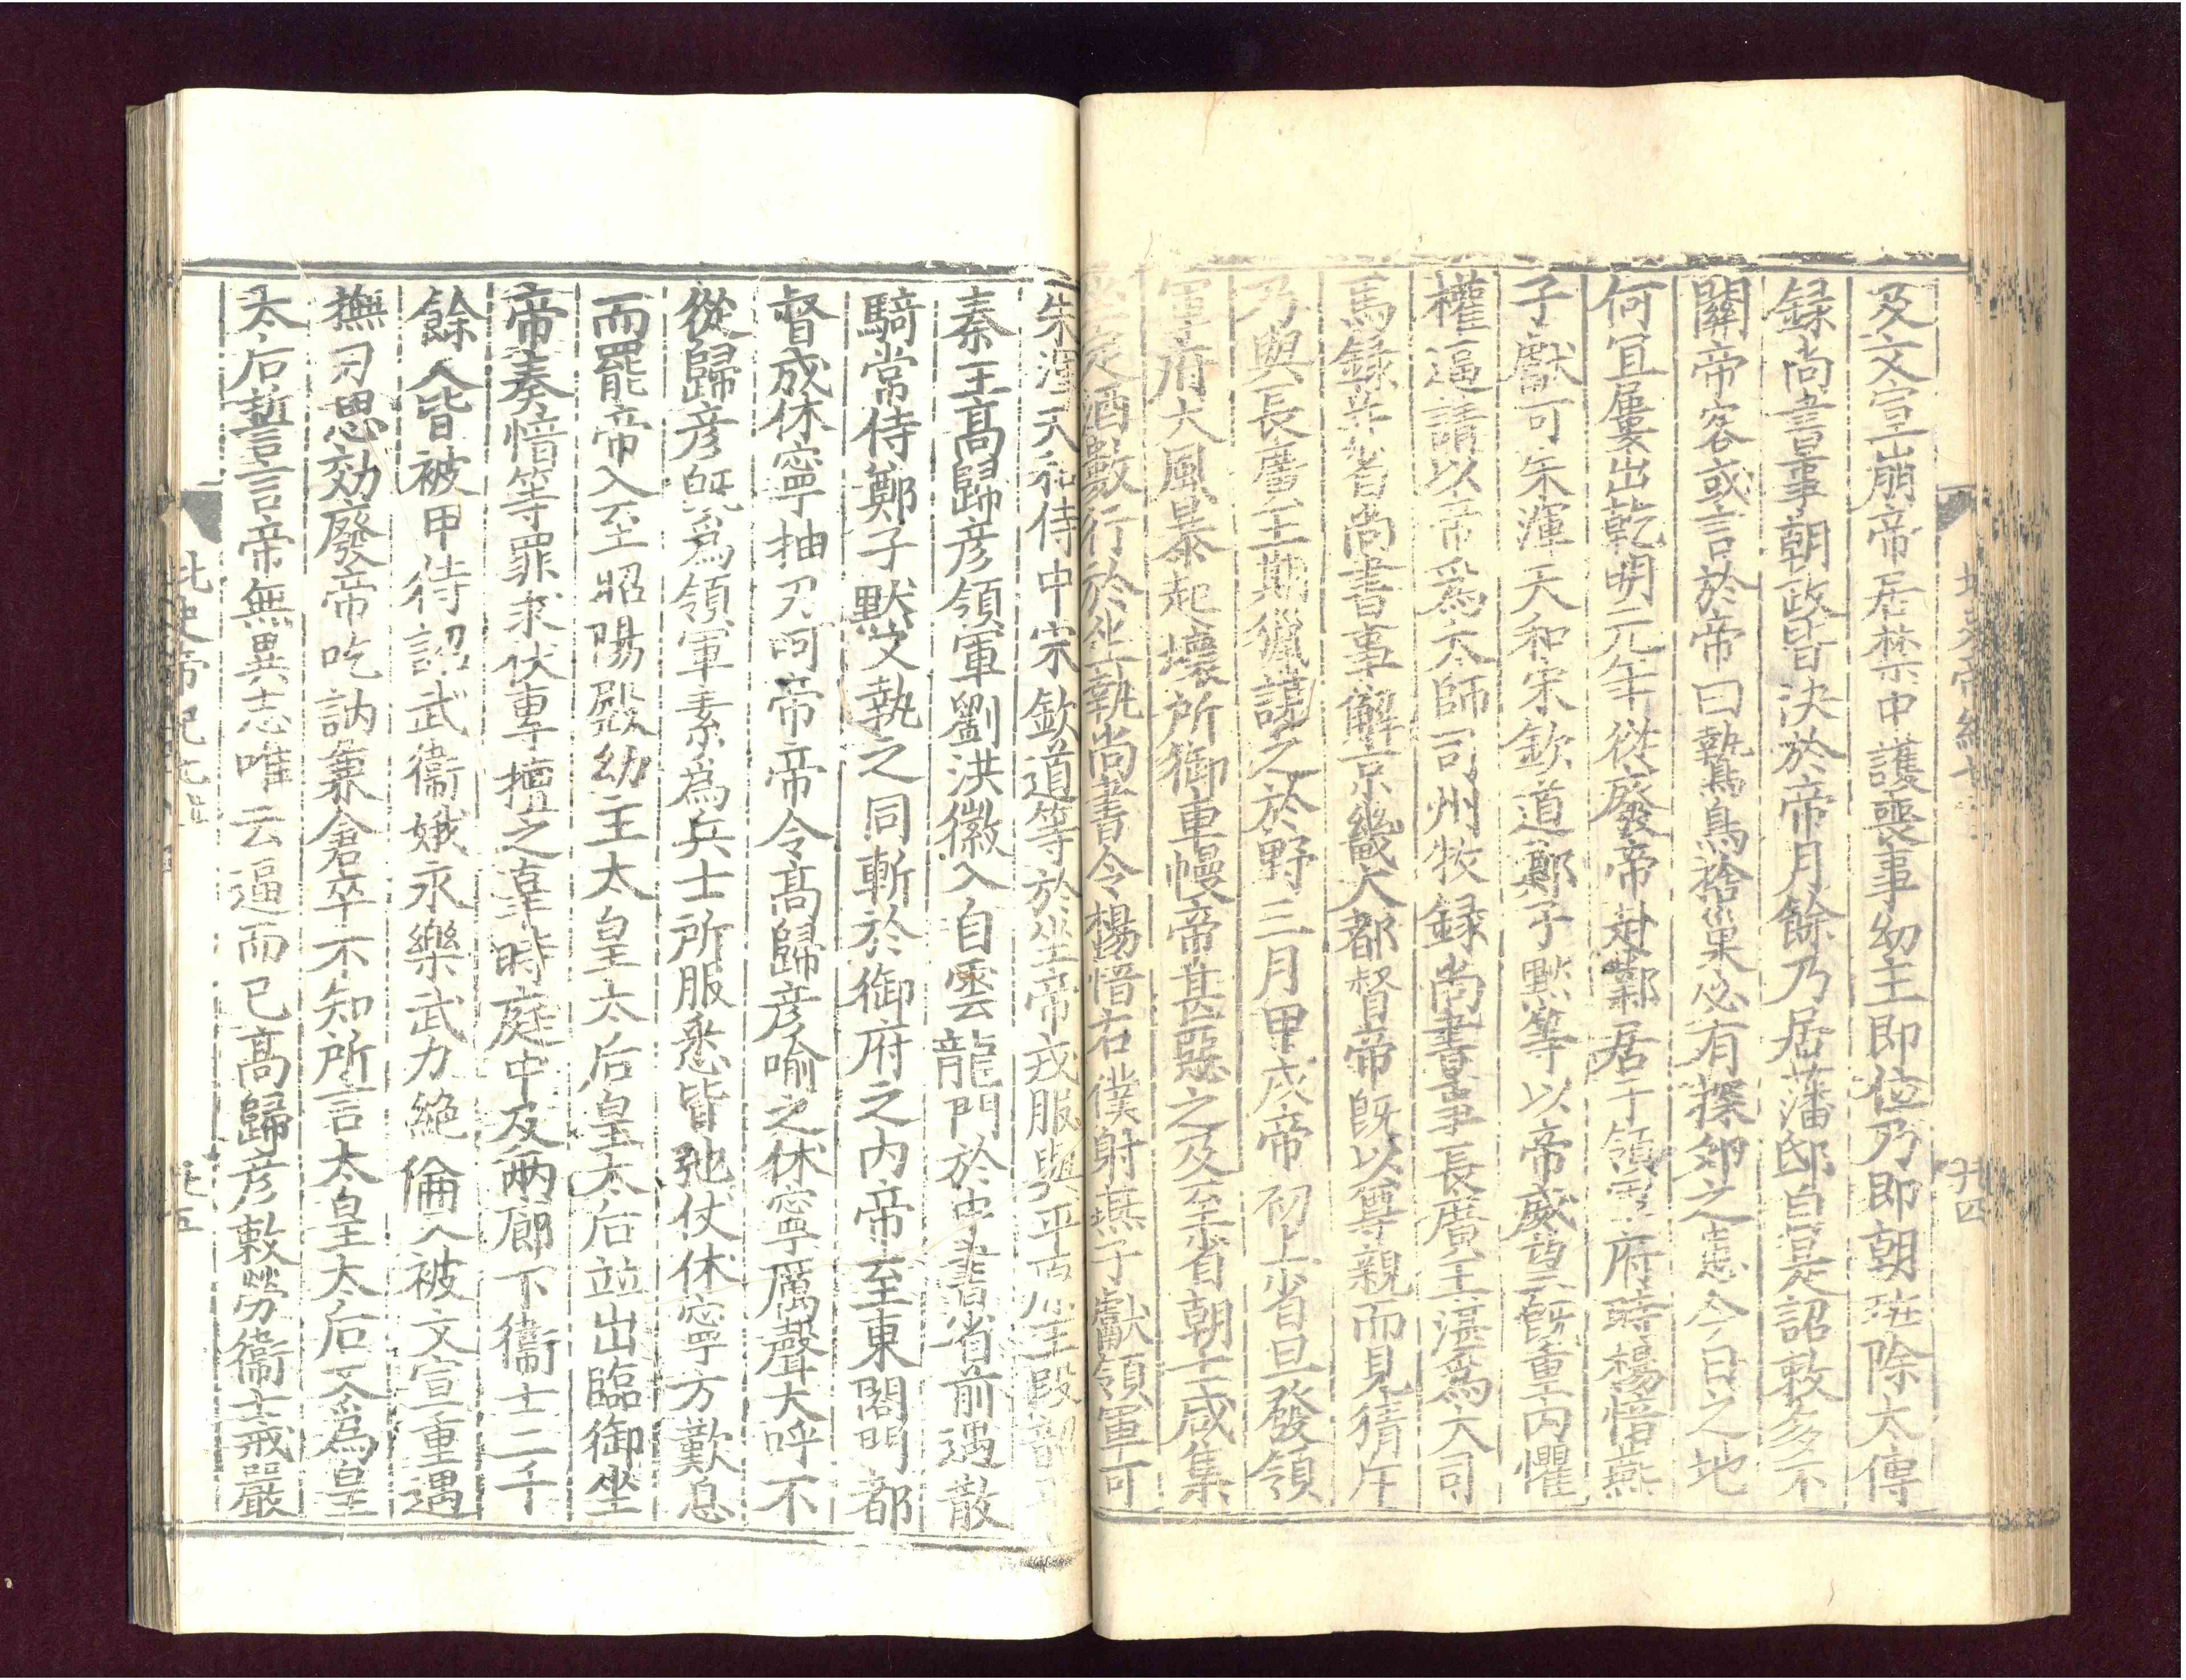 及文宣崩帝居禁中護喪事幼主即位乃即朝班除太傅
録尚書事朝政皆決於帝月餘乃居藩邸自是詔敕多不
關帝客或言於帝曰鷙鳥捨巢必有探卵之患今日之地
何宜屢出乾明元年從廢帝赴鄴居于領軍府時楊愔燕
子獻可朱渾天和宋欽道鄭子默等以帝威望既重内懼
權逼請以帝爲太師司州牧録尚書事長廣王湛爲大司
馬録并省尚書事解京畿大都督帝既以尊親而見猜斥
乃與長廣王期獵謀之於野三月甲戌帝初上省旦發領
軍府大風暴起壞所御車幔帝甚惡之及至省朝士咸集
坐定酒數行於坐執尚書令楊愔右僕射燕子獻領軍可
朱渾天和侍中宋欽道等於坐帝戎服與平原王段韶
秦王高歸彦領軍劉洪徽入自雲龍門於中書省前遇散
騎常侍鄭子默又執之同斬於御府之内帝至東閤門都
督成休寧抽刃呵帝帝令高歸彦喻之休寧厲聲大呼不
從歸彦既爲領軍素爲兵士所服悉皆弛仗休寧方歎息
而罷帝入至昭陽殿幼主太皇太后皇太后並出臨御坐
帝奏愔等罪求伏專擅之辜時庭中及兩廊下衞士二千
餘人皆被甲待詔武衞娥永樂武力絶倫又被文宣重遇
撫刃思効廢帝吃訥兼倉卒不知所言太皇太后又爲皇
太后誓言帝無異志唯云逼而已高歸彦敕勞衞士戒嚴
北史帝紀七
廿四
北史帝紀七
廿五